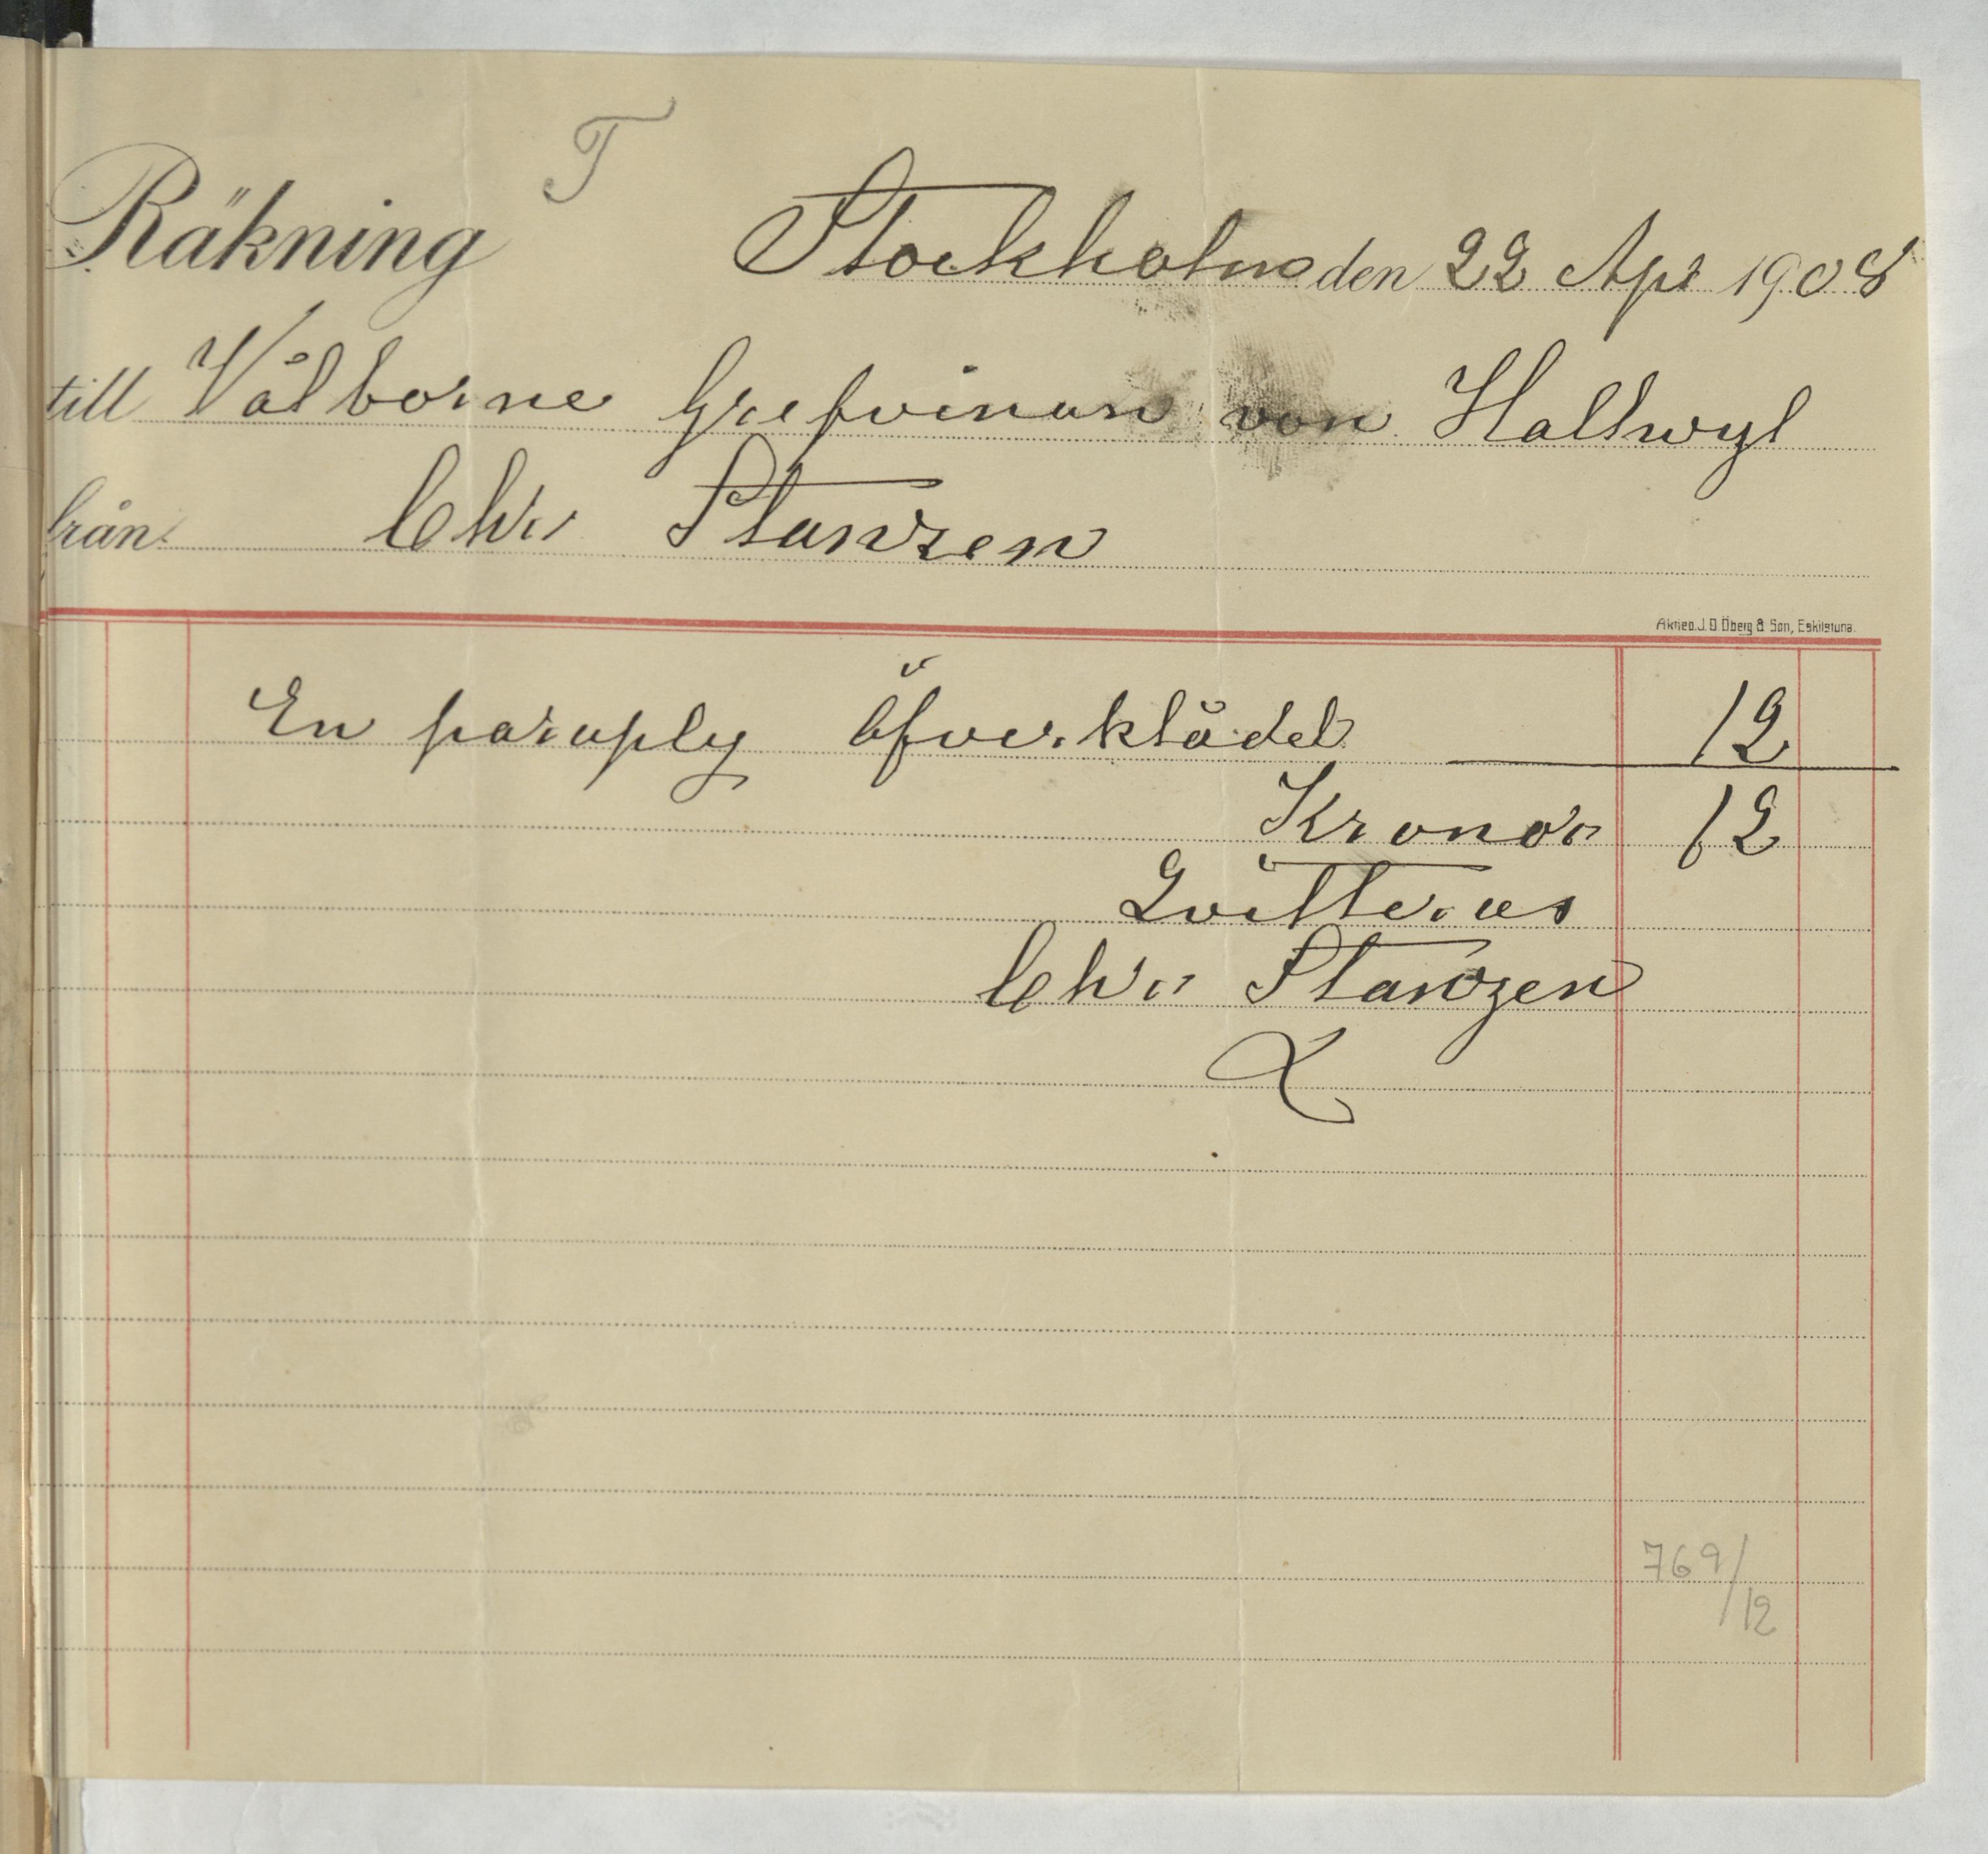 T
Räkning Stockholm den 22 Apr 1908
till Välborne Grefvinan von Hallwyl
från Chr Stanzen
Aktieb. J. O. Öberg & Son, Eskilstuna.
En paraply öfverklädd 12
Kronor 12
Qvitteras
Chr Stanzen
769/12